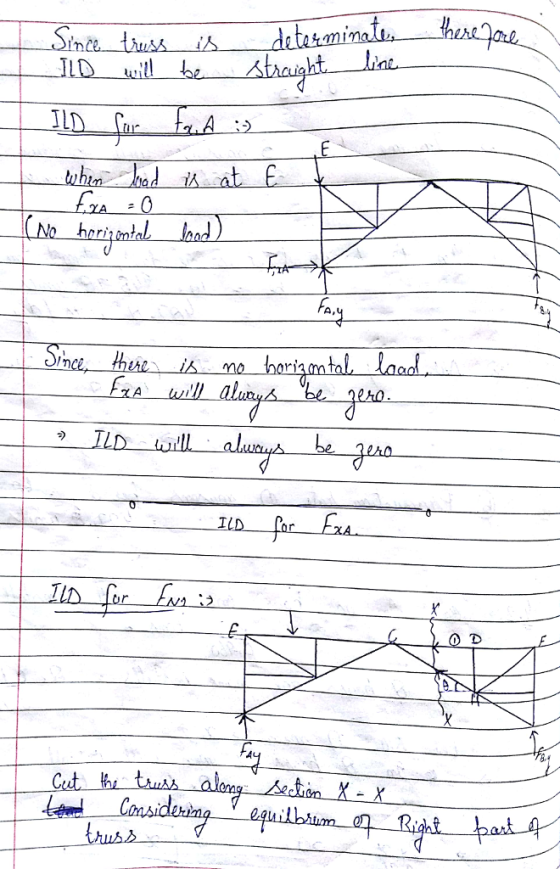 Since truss is determinate, therefore
ILD will be straight line
ILD for Fx,A :⇒
E
when load is at E
FxA = 0
(No horizontal load)
FxA
FA,y
FBy
Since, there is no horizontal load,
FxA will always be zero.
⇒ ILD will always be zero
0 0
ILD for FxA.
ILD for FN1 :⇒
X
E C ① D F
θ H
X
FAy
FBy
Cut the truss along section X-X
Considering equilbrum of Right part of
truss